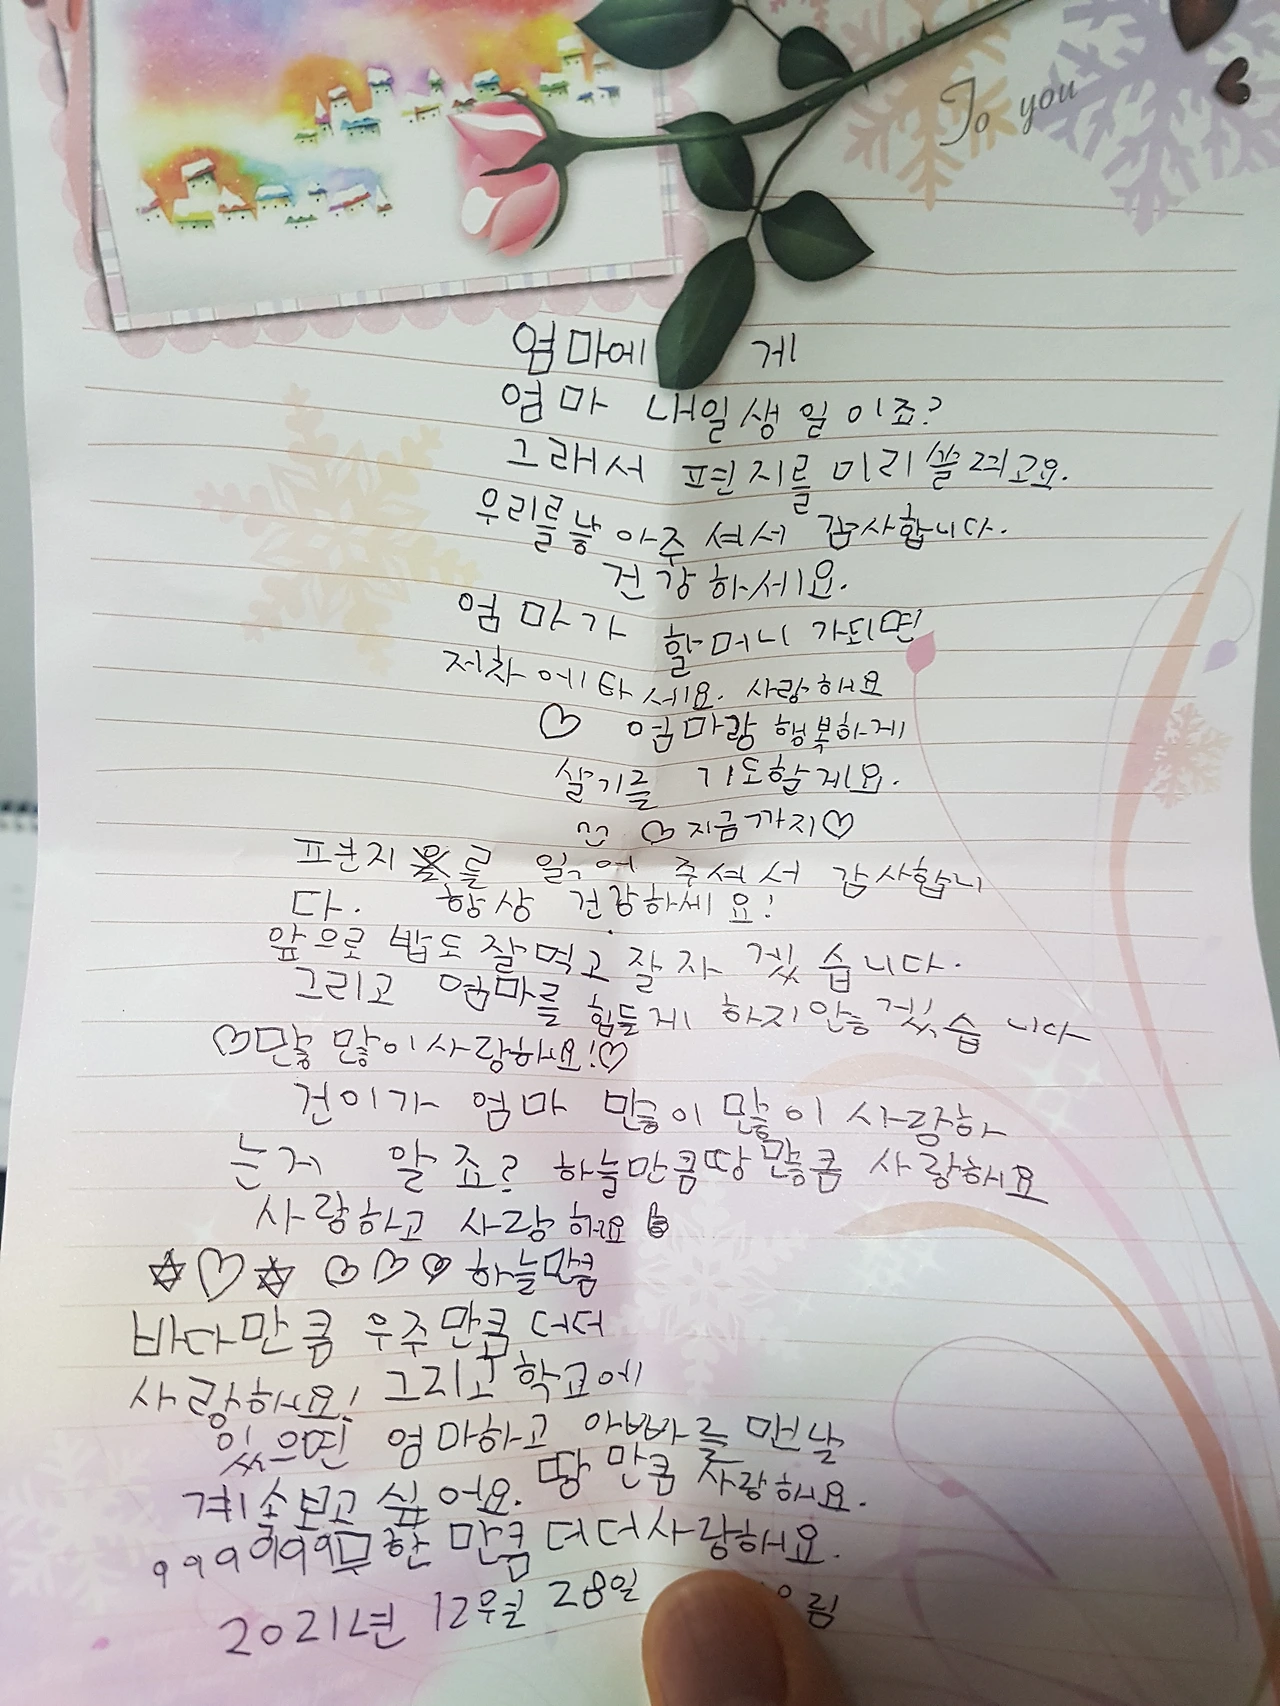 To you
엄마에게
엄마 내일 생일이죠?
그래서 편지를 미리 쓸꺼고요.
우리를낳아주셔서 감사합니다.
건강하세요.
엄마가 할머니가되면
저차에타세요. 사랑해요
♡ 엄마랑 행복하게
살기를 기도할게요.
♡지금까지♡
편지를 읽어 주셔서 감사합니
다. 항상 건강하세요!
앞으로 밥도 잘먹고 잘자겠습니다.
그리고 엄마를 힘들게 하지안능겠습니다
♡많많이사랑해요!♡
건이가 엄마 많이많이 사랑하
는거 알죠? 하늘만큼땅많큼 사랑해요
사랑하고 사랑해요
☆♡☆ ♡♡♡ 하늘만큼
바다만큼 우주만큼 더더
사랑해요! 그리고 학교에
있으면 엄마하고 아빠를 맨날
계속보고싶어요. 땅만큼 사랑해요.
9999999무한만큼 더더사랑해요.
2021년 12월 28일